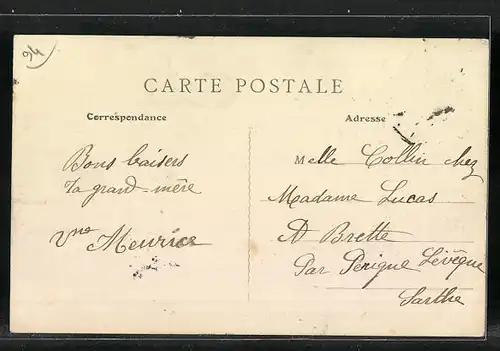 94
CARTE POSTALE
Correspondance
Adresse
Bons baisers
Ta grand-mère
Vve Meurice
Melle Collin chez
Madame Lucas
A Brette
Par Perigne Levêque
Sarthe